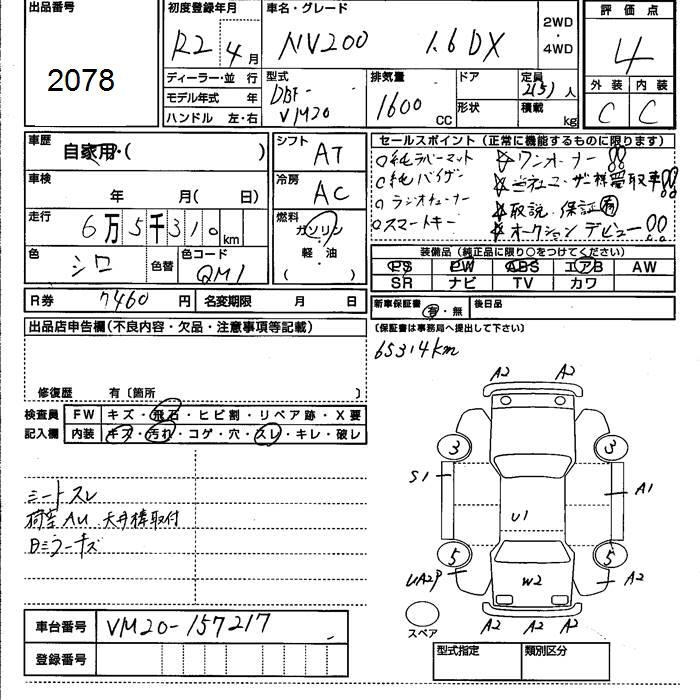 出品番号
2078
初度登録年月
R2 4月
車名・グレード
NV200 1.6DX
2WD
・
4WD
評価点
4
ディーラー・並 行
モデル年式 年
ハンドル 左・右
型式
DBF-
VM20
排気量
1600 CC
ドア
形状
定員
2(5)人
積載
kg
外装 内装
C C
車歴
自家用・( )
シフト
AT
車検
年 月( 日)
冷房
AC
走行
6万5千310km
燃料
ガソリン
・
軽油
( )
色
シロ
色替
色コード
QM1
R券 7460円
名変期限 月 日
セールスポイント(正常に機能するものに限ります)
○純ラバーマット
○純バイザー
○ラジオチューナー
○スマートキー
☆ワンオーナー!!
☆取説、保証有
☆オークションデビュー!!
装備品(純正品に限り○をつけてください)
PS PW ABS エアB AW
SR ナビ TV カワ
新車保証書 有・無 後日品
(保証書は事務局へ提出して下さい)
65314km
出品店申告欄(不良内容・欠品・注意事項等記載)
修復歴 有〔箇所 〕
検査員 FW キズ・飛石・ヒビ割・リペア跡・X要
記入欄 内装 キズ・汚れ・コゲ・穴・スレ・キレ・破レ
シートスレ
荷室AU 天井棒取付
Bミラーキズ
A2 A2
3 3
S1 A1
U1
5 5
UA2P W2 A2
A2 A2 A2
スペア
車台番号 VM20-157217
登録番号
型式指定 類別区分